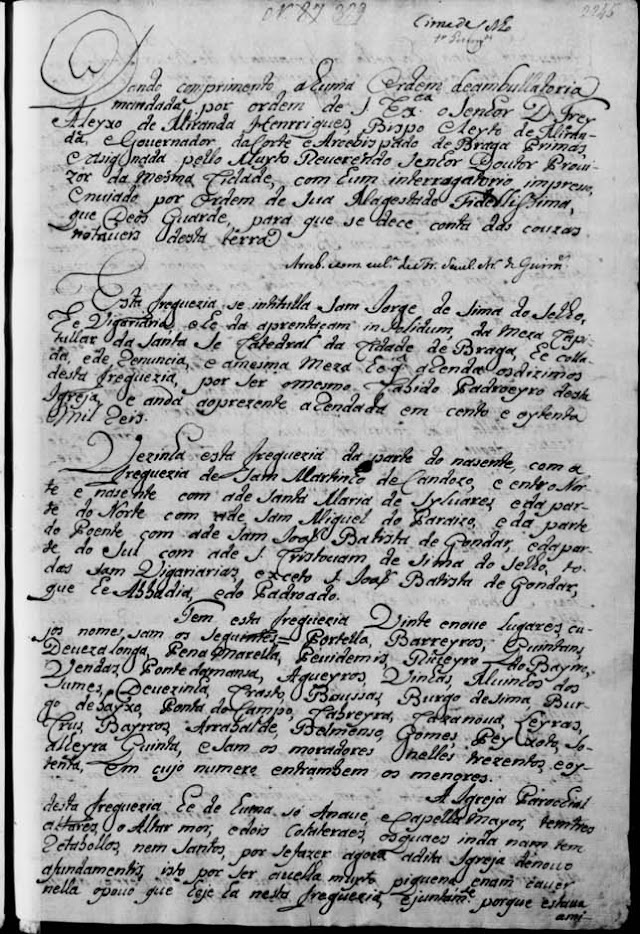 Nº 87 329
2245
Cima de Selho
Dando comprimento a huma Ordem deambullatoria
mandada por ordem de S Exª. o Senhor D. Frey
Aleyxo de Miranda Henrriques, Bispo Eleyto de Miran-
da, e Governador da Corte e Arcebispado de Braga Primas,
e asignada pello Muyto Reverendo Senhor Doutor Provi-
zor da mesma Cidade, com hum interragatorio impreso,
enviado por ordem de Sua Magestade Fidellissima,
que Deos Guarde, para que se dece conta das couzas
notaveis desta terra
Esta freguezia se intitulla Sam Jorge de Sima do Selho,
He Vigariaria, e he da aprentaçam in solidum, da Meza Capi-
tullar da Santa Se Cathedral da Cidade de Braga, he colla-
da, e de Renuncia, e a mesma Meza he q arenda os dizimos
desta freguezia, por ser o mesmo Cabido Padroeyro deste
Igreja, e anda ao prezente arendada em cento e oytenta
Mil Reis.
Vezinha esta freguezia da parte do nasente, com a
freguezia de Sam Martinho de Candozo, e entre Nor-
te e nasente com a de Santa Maria de Sylvares, e da par-
te do Norte com a de Sam Miguel do Paraizo, e da parte
do Poente com a de Sam Joaº. Batista de Gondar, e da par-
te do Sul com a de S. Cristovam de Sima do Selho, to-
das sam Vigariarias, exceto S. Joaº. Batista de Gondar,
que he Abbadia, e do Padroado.
Tem esta freguezia Vinte e nove lugares, cu-
jos nomes sam os seguintes = Portella, Barreyros, Quintans,
Deveza longa, Pena Marella, Penidemis, Ruzeyro do Bayrro,
Vendas, Ponte da mansa, Agueyros, Vinhas, Alvinhos dos
Tumes, Devezinha, Crasto, Boussas, Burgo de Sima, Bur-
go de bayxo, Ponta do Campo, Cabreyra, Cazanova, Leyras,
Crus, Bayrros, Arrabalde, Belmenso, Gomes, Peyxoto, So-
alleyra Quinta, e sam os moradores nelles trezentos e oy-
tenta, em cujo numero entram bem os menores.
A Igreja Parochial
desta freguezia he de huma só Nave, e Capella mayor, tem tres
altares, o Altar mór, e dois Colateraes, os quaes inda nam tem
Retabollos, nem Santos, por se fazer agora a dita Igreja de novo
a fundamentis, isto por ser aquella muyto piquena e nam caver
nella o povo que hoje ha nesta freguezia, e juntamte. porque estava
ami-